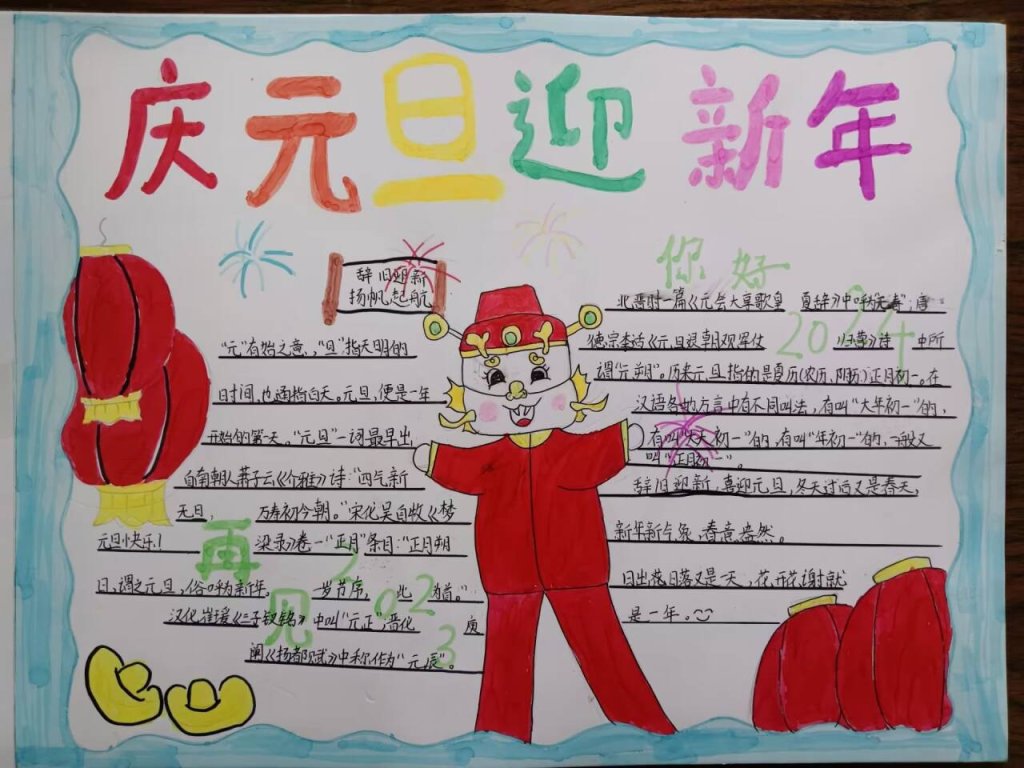 庆元旦迎新年
辞旧迎新
扬帆起航
“元”有始之意，“旦”指天明的
日时间，也通指白天。元旦，便是一年
开始的第一天。“元旦”一词最早出
自南朝人萧子云《介雅》诗：“四气新
元旦， 万寿初今朝。”宋化吴自牧《梦
元旦快乐！
粱录》卷一“正月”条目：“正月朔
日，谓之元旦，俗呼为新年。 一岁节序， 此 为首。”
汉化崔瑗《三子钗铭》中叫“元正”；晋化 庾
阐《扬都赋》中称作“元辰”。
再见 2023
你好
2024
北齐时一篇《元会大享歌皇 夏辞》中呼为 ；唐
德宗李适《元旦退朝观军仗 归营》诗 中所
谓“元朔”。历来元旦指的是夏历（农历、阴历）正月初一。在
汉语各地方言中有不同叫法，有叫“大年初一”的，
有叫“大天初一”的，有叫“年初一”的，一般又
叫“正月初一”。
辞旧迎新，喜迎元旦，冬天过后又是春天，
新年新气象，春意盎然。
日出花日落又是一天，花开花谢就
是一年。